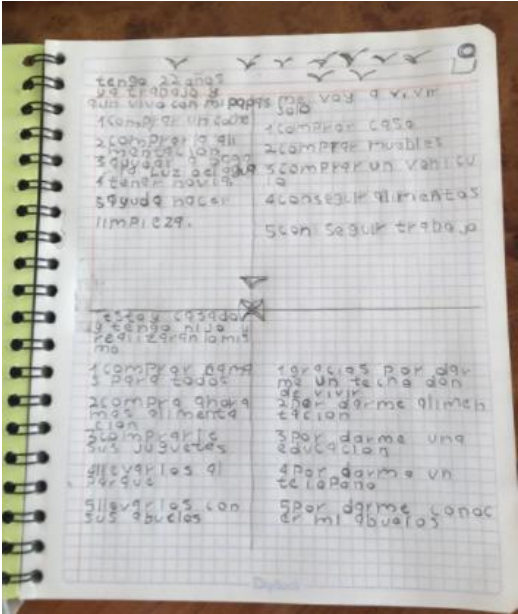 tengo 22 años
ya trabajo y
aun vivo con mi papas
1 comprar un coche
2 comprar la ali
mentacion
3 ayudar a paga
r la luz del agua
4 tener novia
5 ayuda hacer
limpieza.
me voy a vivir
solo
1 comprar casa
2 comprar muebles
3 comprar un vehicu
lo
4 conseguir alimentos
5 con seguir trabajo
Estoy casado
y tengo hijo y
realizaran lo mis
mo
1 comprar cama
s para todos
2 compra ahora
mas alimenta
cion
3 comprarle
sus juguetes
4 llevarlos al
parque
5 llevarlos con
sus abuelos
1 gracias por dar
me un techo don
de vivir
2 por darme alimen
tacion
3 por darme una
educacion
4 por darme un
telefono
5 por darme conoc
er mi abuelos